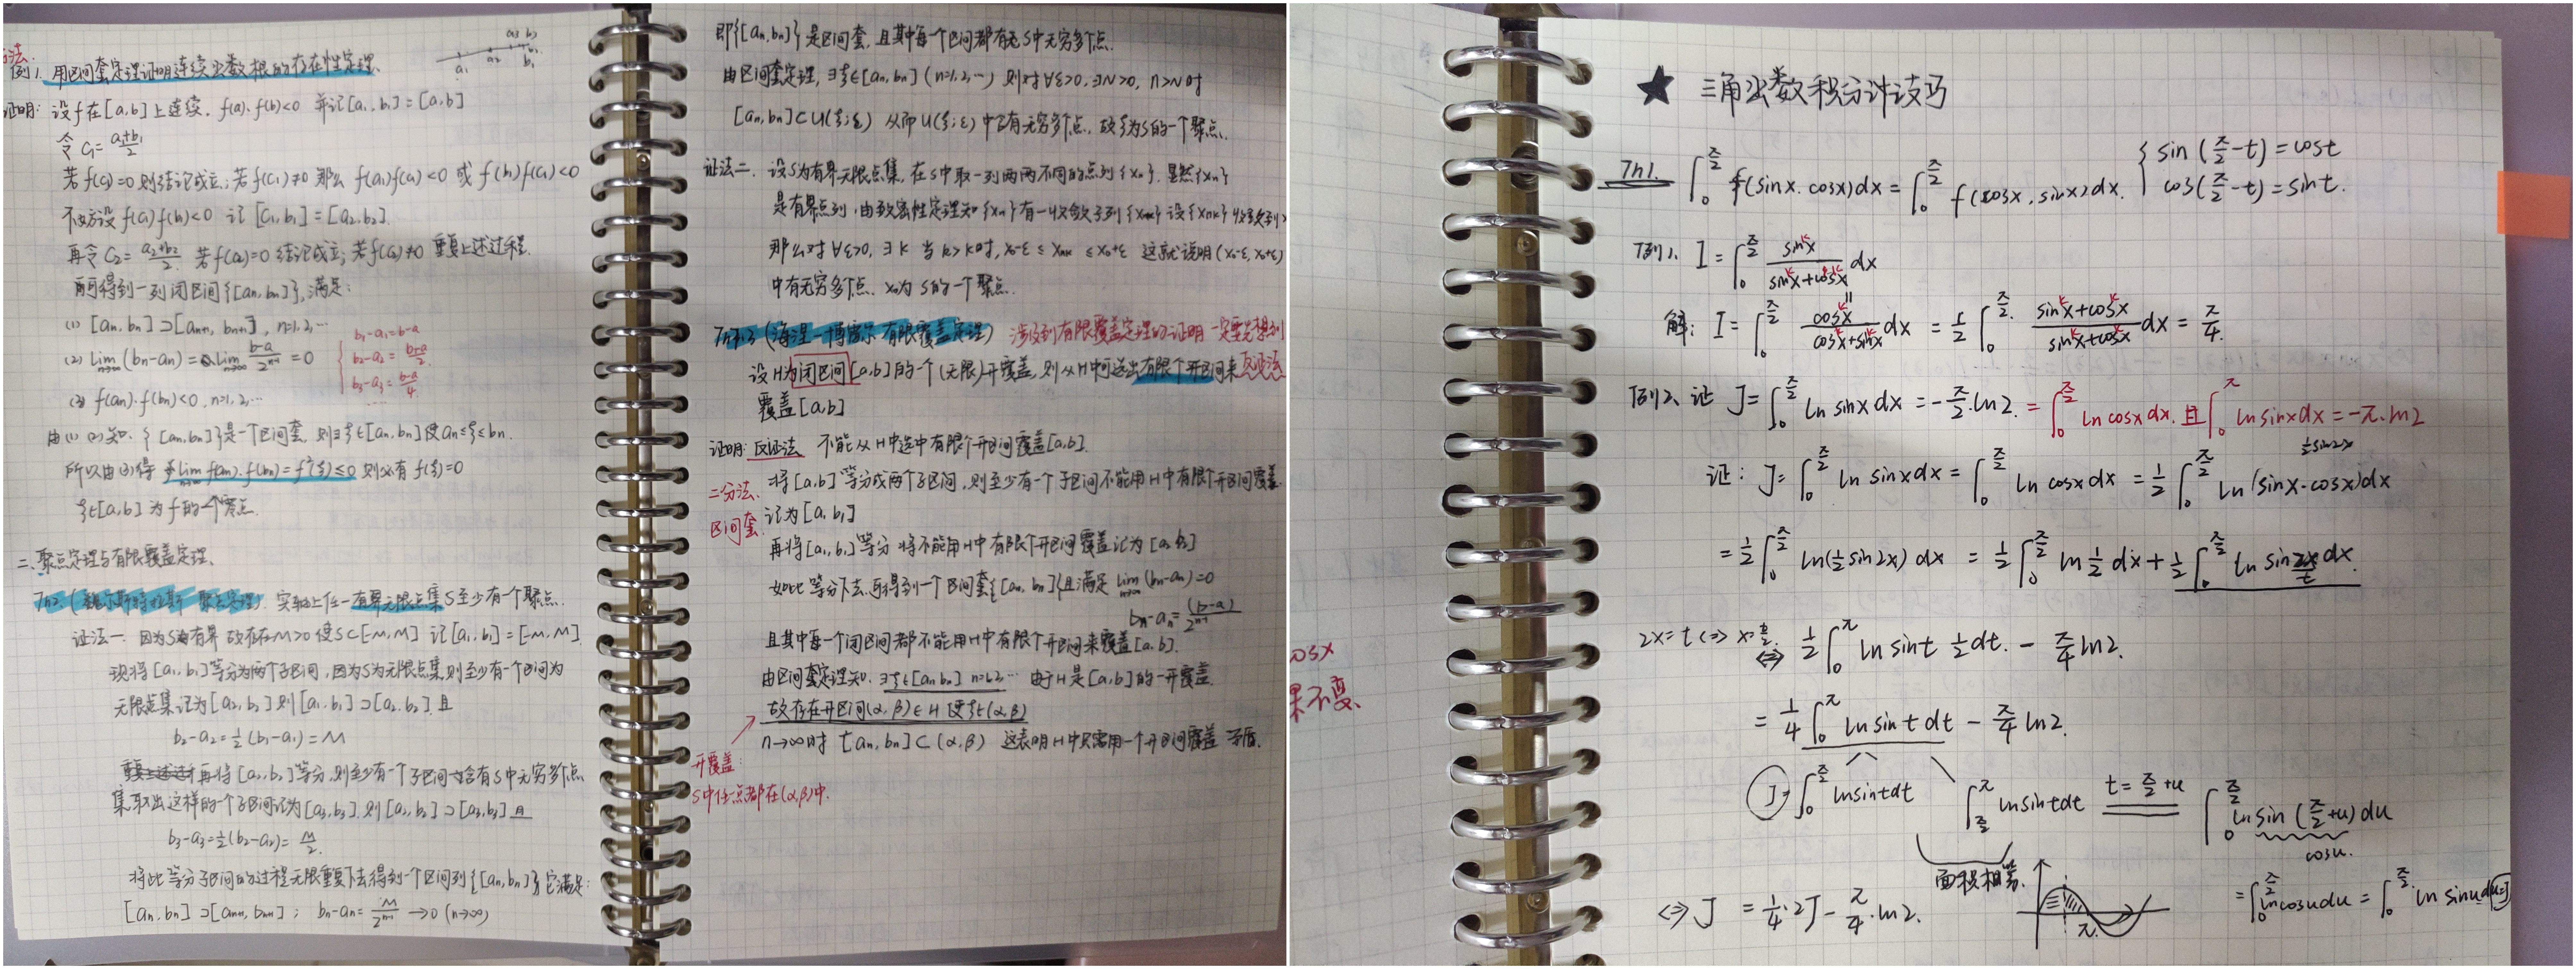 方法
例1. 用区间套定理证明连续函数根的存在性定理.
a₁ a₂ a₃ b₃ b₂ b₁
证明: 设f在[a,b]上连续. f(a)·f(b)<0 并记[a₁,b₁]=[a,b]
令 C₁=(a₁+b₁)/2
若f(c₁)=0则结论成立;若f(c₁)≠0 那么 f(a₁)f(c₁)<0 或 f(b₁)f(c₁)<0
不妨设 f(c₁)f(b₁)<0 记 [c₁,b₁]=[a₂,b₂].
再令 C₂=(a₂+b₂)/2 若f(c₂)=0 结论成立;若f(c₂)≠0 重复上述过程.
可得到一列闭区间{[aₙ,bₙ]},满足:
(1) [aₙ,bₙ]⊃[aₙ₊₁,bₙ₊₁], n=1,2,…
(2) lim_{n→∞}(bₙ-aₙ)=lim_{n→∞} (b-a)/2ⁿ⁻¹=0
b₁-a₁=b-a
b₂-a₂=(b-a)/2
b₃-a₃=(b-a)/4
……
(3) f(aₙ)·f(bₙ)<0, n=1,2,…
由(1)(2)知. {[aₙ,bₙ]}是一个区间套, 则∃ξ∈[aₙ,bₙ]使aₙ≤ξ≤bₙ.
所以由(3)得 lim_{n→∞} f(aₙ)·f(bₙ)=f²(ξ)≤0 则必有 f(ξ)=0
ξ∈[a,b] 为f的一个零点.
二、聚点定理与有限覆盖定理.
Th2.(魏尔斯特拉斯 聚点定理). 实轴上任一有界无限点集S至少有一个聚点.
证法一. 因为S为有界 故存在M>0 使S⊂[-M,M] 记[a₁,b₁]=[-M,M].
现将[a₁,b₁]等分为两个子区间,因为S为无限点集则至少有一个区间为
无限点集记为[a₂,b₂]则[a₁,b₁]⊃[a₂,b₂].且
b₂-a₂=½(b₁-a₁)=M
再将[a₂,b₂]等分,则至少有一个子区间含有S中无穷多个点
集取出这样的一个子区间记为[a₃,b₃].则[a₂,b₂]⊃[a₃,b₃]且
b₃-a₃=½(b₂-a₂)=M/2.
将此等分子区间的过程无限重复下去得到一个区间列{[aₙ,bₙ]}它满足:
[aₙ,bₙ]⊃[aₙ₊₁,bₙ₊₁]; bₙ-aₙ=M/2ⁿ⁻¹→0(n→∞)
即{[aₙ,bₙ]}是区间套,且其中每一个区间都有S中无穷多个点.
由区间套定理, ∃ξ∈[aₙ,bₙ](n=1,2,…) 则对∀ε>0,∃N>0, n>N时
[aₙ,bₙ]⊂U(ξ;ε) 从而U(ξ;ε)中含有无穷多个点, 故ξ为S的一个聚点.
证法二. 设S为有界无限点集, 在S中取一列两两不同的点列{xₙ}. 显然{xₙ}
是有界点列.由致密性定理知{xₙ}有一收敛子列{xₙₖ} 设{xₙₖ}收敛到x₀
那么对∀ε>0, ∃K 当k>K时, x₀-ε≤xₙₖ≤x₀+ε 这就说明(x₀-ε,x₀+ε)
中有无穷多个点. x₀为S的一个聚点.
Th7.3(海涅-博雷尔 有限覆盖定理) 涉及到有限覆盖定理的证明一定要先想到
设H为闭区间[a,b]的一个(无限)开覆盖,则从H中可选出有限个开区间来 反证法
覆盖[a,b]
证明: 反证法 不能从H中选中有限个开区间覆盖[a,b].
二分法. 将[a,b]等分成两个子区间,则至少有一个子区间不能用H中有限个开区间覆盖.
区间套. 记为[a₁,b₁]
再将[a₁,b₁]等分 将不能用H中有限个开区间覆盖记为[a₂,b₂]
如此等分下去.可得到一个区间套{[aₙ,bₙ]}且满足 lim_{n→∞}(bₙ-aₙ)=0
bₙ-aₙ=(b-a)/2ⁿ⁻¹
且其中每一个闭区间都不能用H中有限个开区间来覆盖[a,b].
由区间套定理知. ∃ξ∈[aₙ,bₙ] n=1,2,… 由于H是[a,b]的一开覆盖.
故存在开区间(α,β)∈H 使ξ∈(α,β)
n→∞时 [aₙ,bₙ]⊂(α,β) 这表明H中只需用一个开区间覆盖 矛盾.
开覆盖:
S中任一点都在(α,β)中.
osx
果不变.
★ 三角函数积分计技巧
Th1. ∫₀^{π/2} f(sinx,cosx)dx=∫₀^{π/2} f(cosx,sinx)dx.
{sin(π/2-t)=cost
cos(π/2-t)=sint.
例1. I=∫₀^{π/2} sinᵏx/(sinᵏx+cosᵏx) dx
解: I=∫₀^{π/2} cosᵏx/(cosᵏx+sinᵏx) dx=½∫₀^{π/2} (sinᵏx+cosᵏx)/(sinᵏx+cosᵏx) dx=π/4.
例2. 证 J=∫₀^{π/2} ln sinx dx=-π/2·ln2.=∫₀^{π/2} ln cosx dx. 且∫₀^π ln sinx dx=-π·ln2
½sin2x
证: J=∫₀^{π/2} ln sinx dx=∫₀^{π/2} ln cosx dx=½∫₀^{π/2} ln(sinx·cosx)dx
=½∫₀^{π/2} ln(½sin2x) dx=½∫₀^{π/2} ln½ dx+½∫₀^{π/2} ln sin2x dx.
t
2x=t⇔x=t/2. ⇔ ½∫₀^π ln sint ½dt.-π/4 ln2.
=¼∫₀^π ln sint dt-π/4 ln2.
J=∫₀^{π/2} ln sint dt ∫_{π/2}^π ln sint dt t=π/2+u ∫₀^{π/2} ln sin(π/2+u)du
cosu.
面积相等.
=∫₀^{π/2} ln cosu du=∫₀^{π/2} ln sinu du=J
⇔J=¼·2J-π/4·ln2.
π